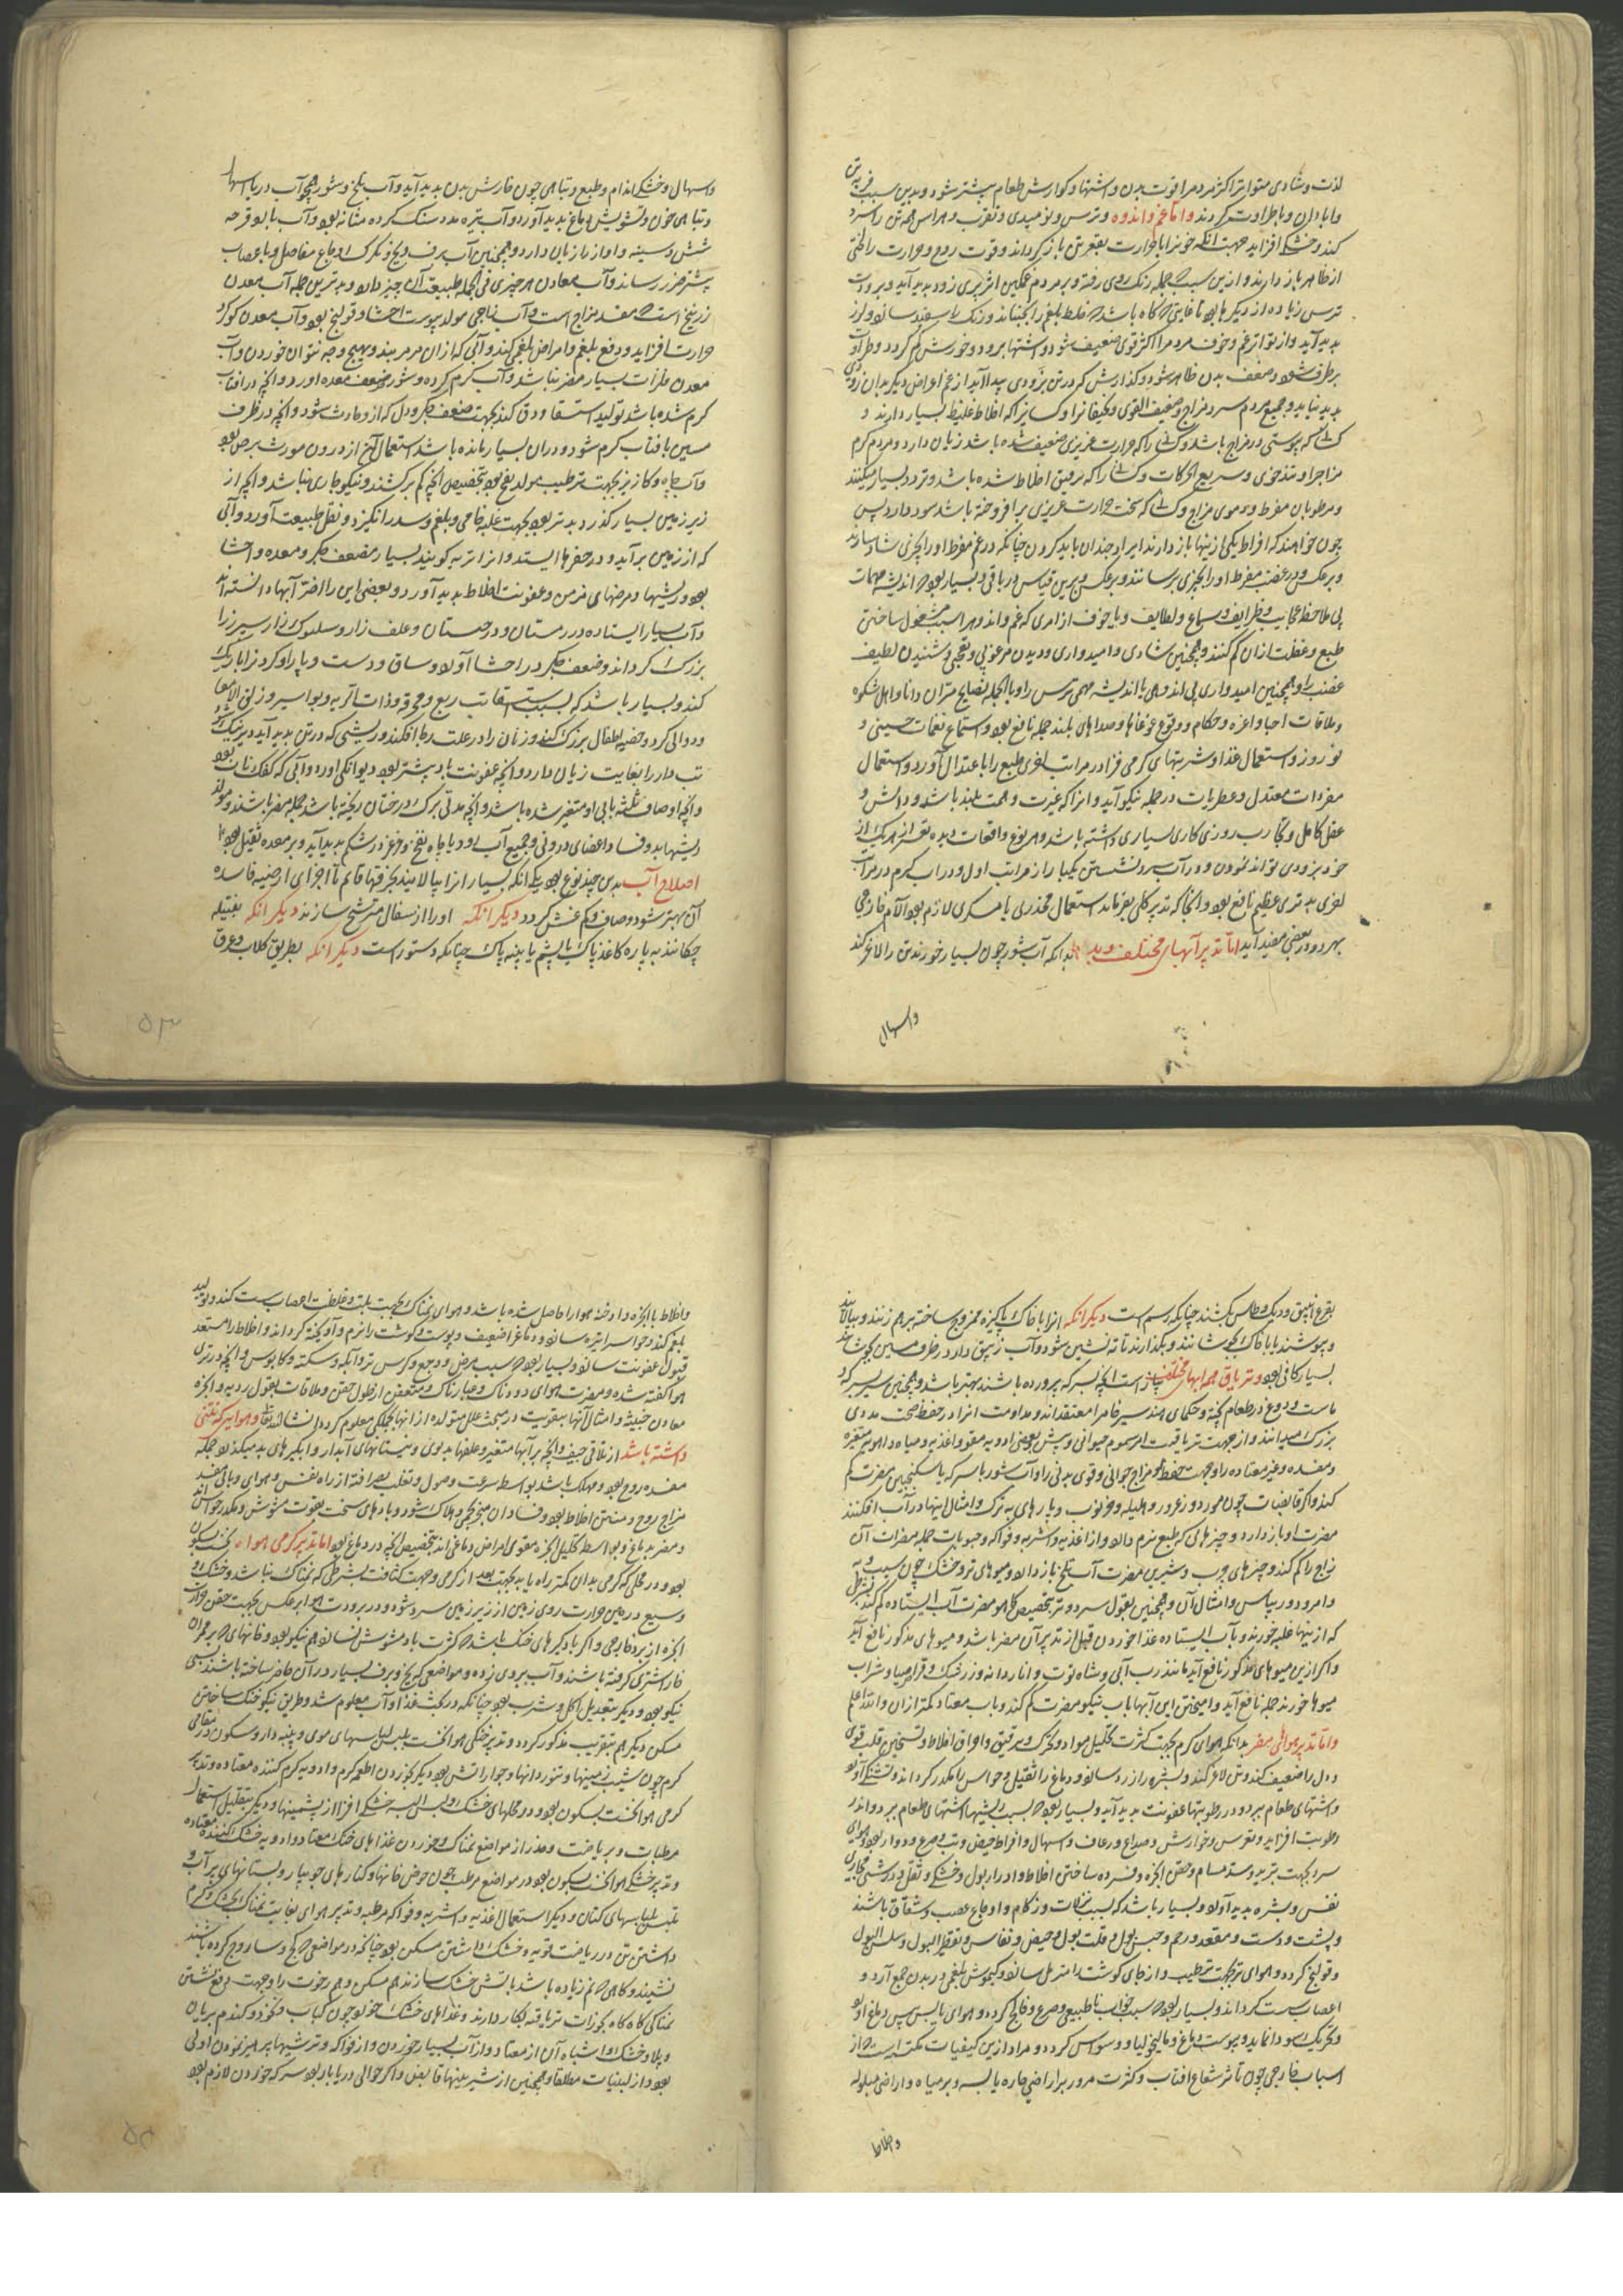 لذت و شادی متواتر اکثر مردم را قوت بدن و اشتها و کوارش طعام بیشتر شود و بدین سبب فربه
و با طراوت کردند واما غم و اندوه و ترس و نومیدی و هراس همه تن را سرد
کند و خشکی افزاید جهت انکه خونرا با حرارت بقعر تن باز کرداند و قوت روح و حرارت را
از ظاهر باز دارند و ازین سبب جمله رنک روی رفته و بر مردم غمکین اثر پیری زود پدید آید و برودت
ترس زیاده از دیکرها بود تا غایتی که کاه باشد که خلط بلغم را بجنباند و رنک را سفید سازد و لرز
پدید آید و از تواتر غم و خوف مردم را اکثر قوی ضعیف شود و اشتها برود و خورش کم کردد و
برطرف شود و ضعف بدن ظاهر شود
پدید نیاید و جمیع مردم سرد مزاج و ضعیف القوی و نحیفانرا و کسانیرا که اخلاط غلیظ بسیار دارند و
را که حرارت غریزی ضعیف شده باشد زیان دارد و مردم کرم
مزاج را و تندخوی و سریع الحرکات را که رقیق اخلاط شده باشد و تردد بسیار میکنند
و مرطوبان مفرط و دموی مزاج که سخت حرارت غریزی بر افروخته باشد سود دارد پس
چون خواهند که افراط یکی ازینها باز دارند ایراد ضد آن باید کردن چنانکه در غم مفرط او را بچیزی شاد سازند
و بر عکس و در غضب مفرط او را بچیزی برسانند و بر عکس و برین قیاس در باقی و بسیار بود که اندیشه مهمات
بملاحظه عجایب و ظرایف و سماع و لطایف و یا خوف از امری که غم و اندوه را سبب مشغول ساختن
طبع و غفلت ازان کم کنند و همچنین شادی و امیدواری و دیدن مرغوبی و تعجبی و شنیدن لطیف
غضب را و همچنین امیدواری بی اندوهی با اندیشه مهمی ترس را و بالجمله نصایح مشفقان دانا و اهل شکوه
و ملاقات احبا و اعزه و حکام و وقوع غوغاها و صداهای بلند جمله نافع بود و استماع نغمات حسینی و
نوروز و استعمال غذا و شربتهای کرمی فزا در مراتب لغوی طبع را با اعتدال آورد و استعمال
مفردات معتدل و عطریات در جمله نیکو آید و انرا که غیرت و همت بلند باشد و دانش و
عقل کامل و تجارب روزی کاری بسیاری داشته باشد و هر نوع واقعات دیده
خود بزودی تواند نمودن و در آب سرد نشستن یکبار از مراتب اول و در آب کرم در مراتب
لغوی تدبیری عظیم نافع بود و انجا که تدبیر کلی بغرماید استعمال مخدری یا مسکری لازم بود و آلام خارجی
بهر دو در بعضی مفید آید اما تدبیر آبهای مختلف و بد بدانکه آب شور چون بسیار خورند تن را لاغر کند
واسهال
واسهال و خشکی اندام و طبع و تباهی چون خارش بدن پدید آید و آب تلخ و شور همچو آب دریا اسهال
و تباهی خون و تشویش دماغ پدید آورد و آب تیره مدد سنک کرده و مثانه بود و آب با بو قرحه
شش و سینه و آواز را زیان دارد و همچنین آب برف و یخ و تکرک اوجاع مفاصل و با اعصاب
بیشتر ضرر رساند و آب معادن هر چیزی فی الجمله طبیعت آن چیز دارد و بدترین جمله آب معدن
زرنیخ است که مفسد مزاج است و آب زاجی مولد یبوست احشا و قولنج بود و آب معدن کوکرد
حرارت افزاید و دفع بلغم و امراض بلغمی کند و آبی که ازان مرمر بندد بهیچ وجه نتوان خوردن و آب
معدن فلزات بسیار مضر نباشد و آب کرم کرده و شور ضعف معده آورد و انچه در آفتاب
کرم شده باشد تولید استسقا و دق کند بجهت ضعف جکر و دل که از و حادث شود و انچه در ظرف
مسین بآفتاب کرم شود و دران بسیار مانده باشد استعمال آن از درون مورث برص بود
و آب چاه و کاریز بجهت ترطیب مولد نفخ بود بتخصیص انچه کم برکشند و نیکو جاری نباشد و انچه از
زیر زمین بسیار کذرد بدتر بود بجهت غلبه خامی و بلغم و سدد انکیزد و ثقل طبیعت آورد و آبی
که از زمین برآید و در حفرها ایستد و انرا تره کویند بسیار مضعف جکر و معده و احشا
بود و ریشها و مرضهای مزمن و عفونت اخلاط پدید آورد و بعضی این را اضر آبها دانسته اند
و آب بسیار ایستاده در زمستان و درختستان و علف زار و سلبوک زار سپرز را
بزرک کرداند و ضعف جکر در احشا آورد و ساق و دست و پا را و کردنرا باریک
کند و بسیار باشد که بسبب استسقا تب ربع و محرقه و ذات الریه و بواسیر و زلق الامعا
و دوالی کردد و خصیه اطفال بزرک کند و زنان را در علت رجا افکند و ریشی که در تن پدید آید دیر نیک شود
تب دار را بغایت زیان دارد و انچه عفونت با او بیشتر بود دیوانکی آورد و آبی که کفک ناک بود
و انچه اوصاف ثلثه یا بی او متغیر شده باشد و انچه مدتی برک درختان ریخته باشد جمله مضر باشند و مولد
ریشها بود و فساد اعضای درونی و جمیع آب رود با چاه نفخ و غرغر در شکم پدید آید و بر معده ثقیل بود اما
اصلاح آب بدی چند نوع بود یکی انکه بسیار انرا بپالایند بخرقها قایم تا اجزای ارضیه فاسده
آن بهتر شود و صاف و کم غش کردد دیکر انکه اورا از سفال مترشح سازند دیکر انکه بفتیله
چکانند به پاره کاغذ پاک یا پشم یا پنبه پاک چنانکه دستور است دیکر انکه بطریق کلاب و عرق
بقرع انبیق و دیک و طاس بکشند چنانکه رسم است دیکر انکه انرا با خاک پاکیزه ممزوج ساخته برهم زنند و بپالایند
و بجوشند یا با خاک بجوشانند و بکذارند تا ته نشین شود و آب زیبق دار در ظرف مسین جوشاند
بسیار کافی بود و تریاق همه ابهای مختلف پیاز است انچه بسرکه پرورده باشند بهتر باشد و همچنین سیر بسرکه و
ماست و دوغ در طعام پخته و حکمای هند سیر خام را معتقدند و مداومت انرا در حفظ صحت مددی
بزرک میدانند و از جهت تریاقیت امر سموم حیوانی و پیش بعضی ادویه مقوی و اغذیه و میاه و اهویه متغیره
و مفسده و غیر معتاده را و جهت حفظ قو مزاج جوانی و قوی بدنی را و آب شور با سرکه یا سکنجبین مضرت کم
کند و اکر قابضات چون مورد و زعرور و هلیله و خرنوب و پارهای به ترک و امثال اینها در آب افکنند
مضرت او باز دارد و چیزهای که طبع نرم دارد و از اغذیه و اشربه و فواکه و حبوبات جمله مضرات آن
زاج را کم کند و چیزهای چرب و شیرین مضرت آب تلخ باز دارد و میوهای تر و خشک چون سیب و به
و امرود و ریباس و امثال آن و همچنین بقول سرد و تر بتخصیص کاهو مضرت آب ایستاده کم کند بشرطی
که از پیها غلبه خورند و بآب ایستاده غذا خوردن قبل از تدبیر آن مضر باشد و میوهای مذکور نافع آید
و اکر ازین میوهای مذکور نافع آید مانند رب آبی و شاه توت و انار دانه و زرشک و قراصیا و شراب
میوها خورند جمله نافع آید و آمیختن این آبها باب نیکو مضرت کم کند و باب معتاد کمتر ازان والله اعلم
واما تدبیر هوای مضر بدانکه هوای کرم بجهت کثرت تحلیل مواد و تحریک و ترقیق و احراق اخلاط و تسخین قلب قوی
و دل را ضعیف کند و تن لاغر کند و بشره را زرد سازد و دماغ را ثقیل و حواس را مکدر کرداند و تشنکی آورد
و اشتهای طعام ببرد و در رطوبتها عفونت پدید آید و بسیار بود که بسبب ریشها اشتهای طعام ببرد و اندر
رطوبت افزاید و نقرس و خوارش و صداع و رعاف و اسهال و افراط حیض و تب و صرع و دوار بود و هوای
سرد بجهت تبرید و سد مسام و حقن ابخره و فسرده ساختن اخلاط و ادرار بول و خشکی و ثقل و درشتی مجاری
نفس و بشره پدید آورد و بسیار باشد که سبب نزلات و زکام و اوجاع عصب و شقاق باشند
و پشت و دست و مقعد و رحم و حبس بول و قلت بول و حیض و نفاس و تقطیر البول و سلس البول
و قولنج کردد و هوای تر بجهت ترطیب و ارخای کوشت را مترهل سازد و کیموش بلغمی در بدن جمع آرد و
اعصاب سست کرداند و بسیار بود که سبب خواب ناطبیعی و صرع و فالج کردد و هوای یابس یبس دماغ آورد
و تحریک سودا نماید و یبوست دماغ و مالیخولیا و وسواس کردد و مراد ازین کیفیات مکتسبه است که از
اسباب خارجی چون تاثر شعاع آفتاب و کثرت مرور بر اراضی حاره یابسه و بر میاه و اراضی مبلوله
واخلاط
واخلاط با ابخره و ادخنه هوا را حاصل شده باشد و هوای نمناک بجهت بلت و غلظت اعصاب سست کند و تولید
بلغم کند و حواس را تیره سازد و دماغ را ضعیف و پوست و کوشت را نرم و آویخته کرداند و اخلاط را مستعد
قبول عفونت سازد و بسیار بود که سبب مرض و وجع و کرس تر و آبکه و سکته و کابوس و انچه در تری
هوا کفته شده و مضرت هوای دودناک و غبارناک و متعفن از طول حقن و ملاقات بقول ردیه و ابخره
معادن خبیثه و امثال آنها بتقویت در مبحث علل متولده از انها بجملکی معلوم کردد انشاءالله تعالی و هوایی که نتنی
داشته باشد از تلاقی جیف و انچه بر آبها متغیر و علفها بدبوی و نیستانهای آبدار و آبکیرهای بد میکذرد جمله
مفسده روح بود و مهلک باشد بواسطه سرعت وصول و تغلب بصرافته از راه نفس و هوای وبائی مفسد
مزاج روح و منتن اخلاط بود و فساد آن منجر بهلاک شود و بادهای سخت بقوت مشوش و مکدر حواس اند
و مضر بدماغ و بواسطه تحلیل ابخره مقوی امراض دماغی اند بتخصیص انچه در دماغ بود اما تدبیر کرمی هوا نخست سکون
بود و در محلی که کرمی بدان کمتر راه یابد بجهت بعد از کرمی و جهت کثافت بشرطی که نمناک نباشد و خنک و
وسیع در حین حرارت روی زمین از زیر زمین سرد شود و در برودت هوا بر عکس بجهت حقن حرارت
ابخره از برد خارجی و اکر بادکیرهای خنک باشد که کثرت باد مشوش نسازد هم نیکو بود و خانهای که بر جدران
خار اشتری کرفته باشند و آب بر وی زده و مواضعی که یخ و برف بسیار در آن حاضر ساخته باشند بسی
نیکو بود و دیکر تبدیل اکل و شرب بود چنانکه در بحث غذا و آب معلوم شد و طریق نیکو خنک ساختن
مسکن دیکر هم بتقریب مذکور کردد و تدبیر خنکی هوا نخست بلبس لباسهای موی و پنبه دار و سکون در مقامی
کرم چون شیب زمینها و تنور دانها و جوار آتش بود دیکر بخوردن اطعمه کرم و ادویه کرم کننده معتاده و تدبیر
کرمی هوا نخست بسکون بود در محلهای خشک و لبس البسه خشکی افزا از پشمینها و دیکر بتقلیل استعمال
مرطبات و بریاضت و حذر از مواضع نمناک و خوردن غذاهای خشک معتاد و ادویه خشک کننده معتاده
و تدبیر خشکی هوا نخست بسکون بود در مواضع مرطب چون حوض خانها و کنارهای جویبار و بستانهای پر آب و
بلبس لباسهای کتان و دیکر استعمال اغذیه و اشربه و فواکه مرطبه و تدبیر هوای بغایت نمناک خشک و کرم
داشتن تن در ریاضت قویه و خشک داشتن مسکن بود چنانکه در مواضعی که کج و ساروج کرده باشند
نشینند و کاهی که نم زیاده باشد باتش خشک سازند هم مسکن و هم رخوت را و جهت دفع نشستن
نمناکی کاه کاه بخورات تریاقیه بکار دارند و غذاهای خشک خورند چون کباب و نخود و کندم بریان
و پلاو خشک و اشباه آن از معتاد و از آب بسیار خوردن و از فواکه و ترشیها پرهیز نمودن اولی
بود و از لبنیات مطلقا و همچنین از شیرینیها قابض و اکر حوالی دریا بار بود سرکه خوردن لازم بود